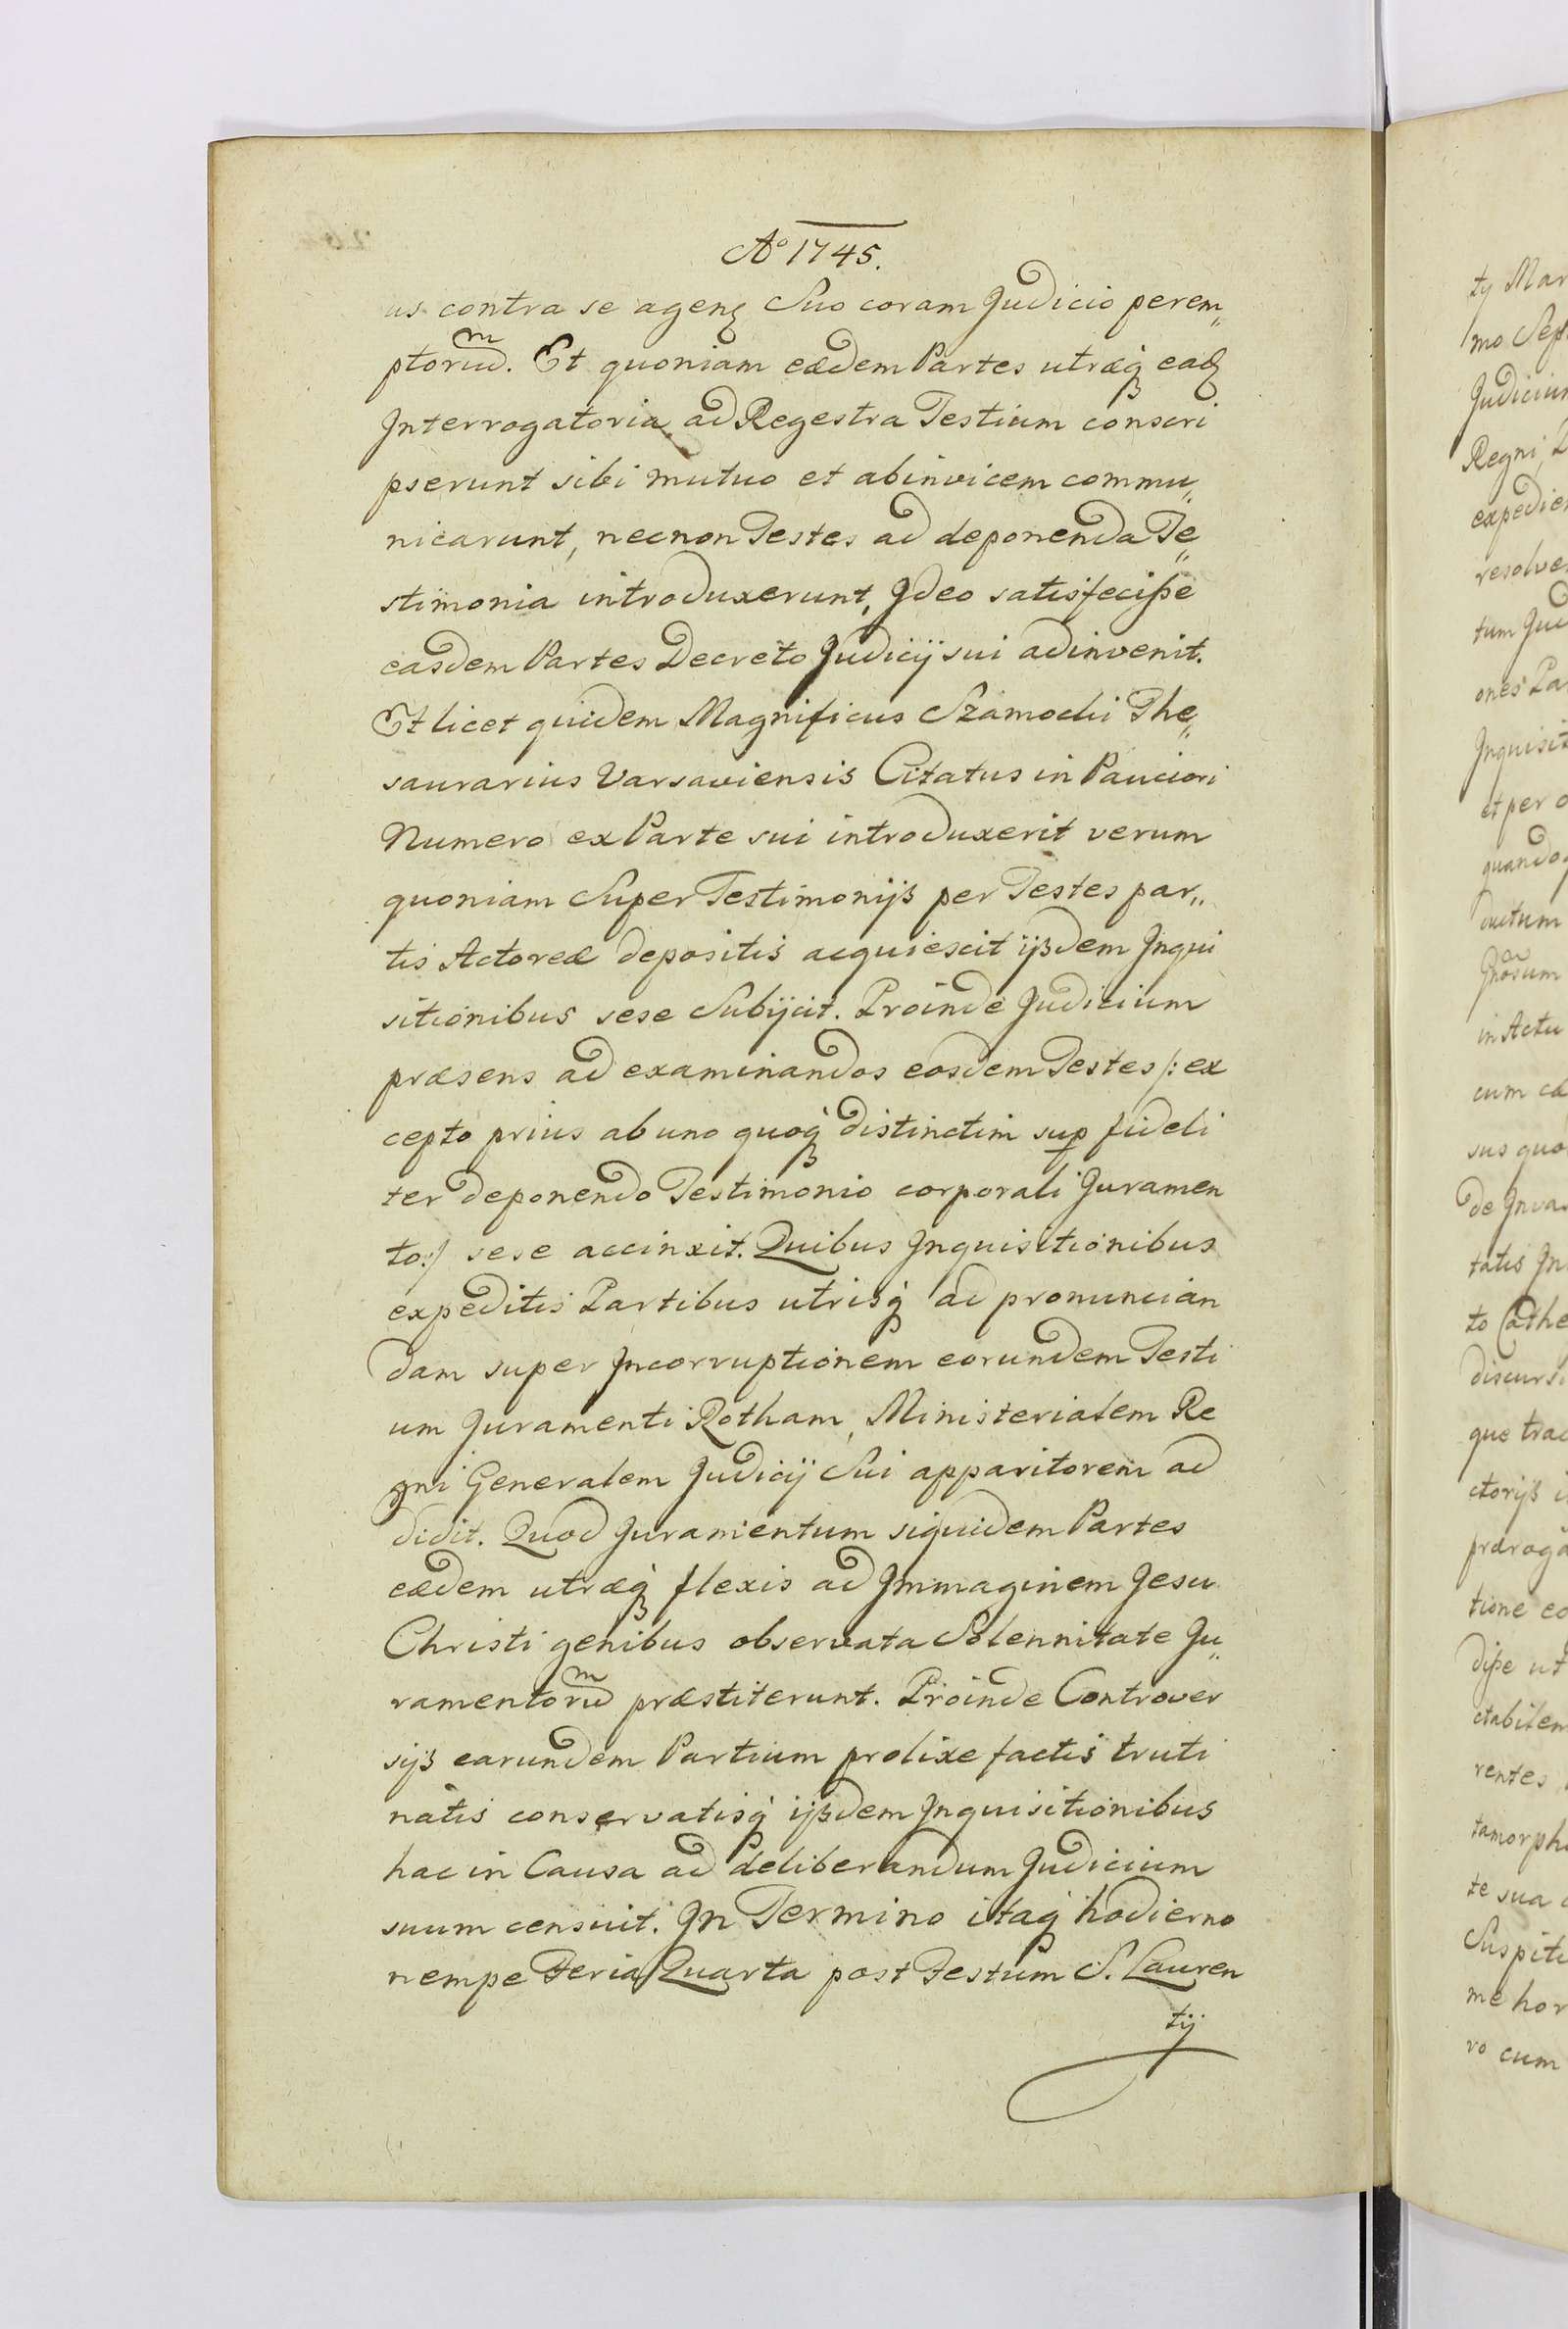 Aᵒ 1745.
us contra se agenꝫ Suo coram Judicio perem„
ptoriuᵐ. Et quoniam eædem Partes utræq́ᷓ eadꝫ
Interrogatoria ad Regestra Testium conscri
pserunt sibi mutuo et abinvicem commu„
nicarunt, necnon Testes ad deponenda Te„
stimonia introduxerunt, Ideo satisfecisse
easdem Partes Decreto Judicij sui adinvenit.
Et licet quidem Magnificus Szamocki The„
saurarius Varsaviensis Citatus in Pauciori
Numero ex Parte sui introduxerit verum
quoniam Super Testimonijs per Testes par„
tis Actoreæ depositis acquiescit ijsdem Inqui
sitionibus sese Subijcit. Proinde Judicium
præsens ad examinandos eosdem Testes /: ex
cepto prius ab uno quoq́ distinctim sup fideli
ter deponendo Testimonio corporali Juramen
to :/ sese accinxit. Quibus Inquisitionibus
expeditis Partibus utrisq́ ad pronuncian
dam super Incorruptionem eorundem Testi
um Juramenti Rotham, Ministerialem Re
gni Generalem Judicij Sui apparitorem ad
didit. Quod Juramentum siquidem Partes
eædem utræq́ flexis ad Immaginem Jesu
Christi genibus observata Solennitate Ju„
ramentoruᵐ præstiterunt. Proinde Controver
sijs earundem Partium prolixe factis truti
natis conservatisq́ ijsdem Inquisitionibus
hac in Causa ad deliberandum Judicium
suum censuit. In Termino itaq́ hodierno
nempe Feria Quarta post Festum S. Lauren
tij
ty Mar
mo Sept
Judicium
Regni
expedien
resolve
tum Jud
ones Pa
Inquisit
et per
quandoq
ductum
in Actu
cum cæ
sus quo
de Inva
tatis In
to Cathe
discursi
que trac
ctorijs i
præroga
tione eo
disse ut
ctabilem
rentes
tamorpho
te sua
Suspiti
me hor
ro cum